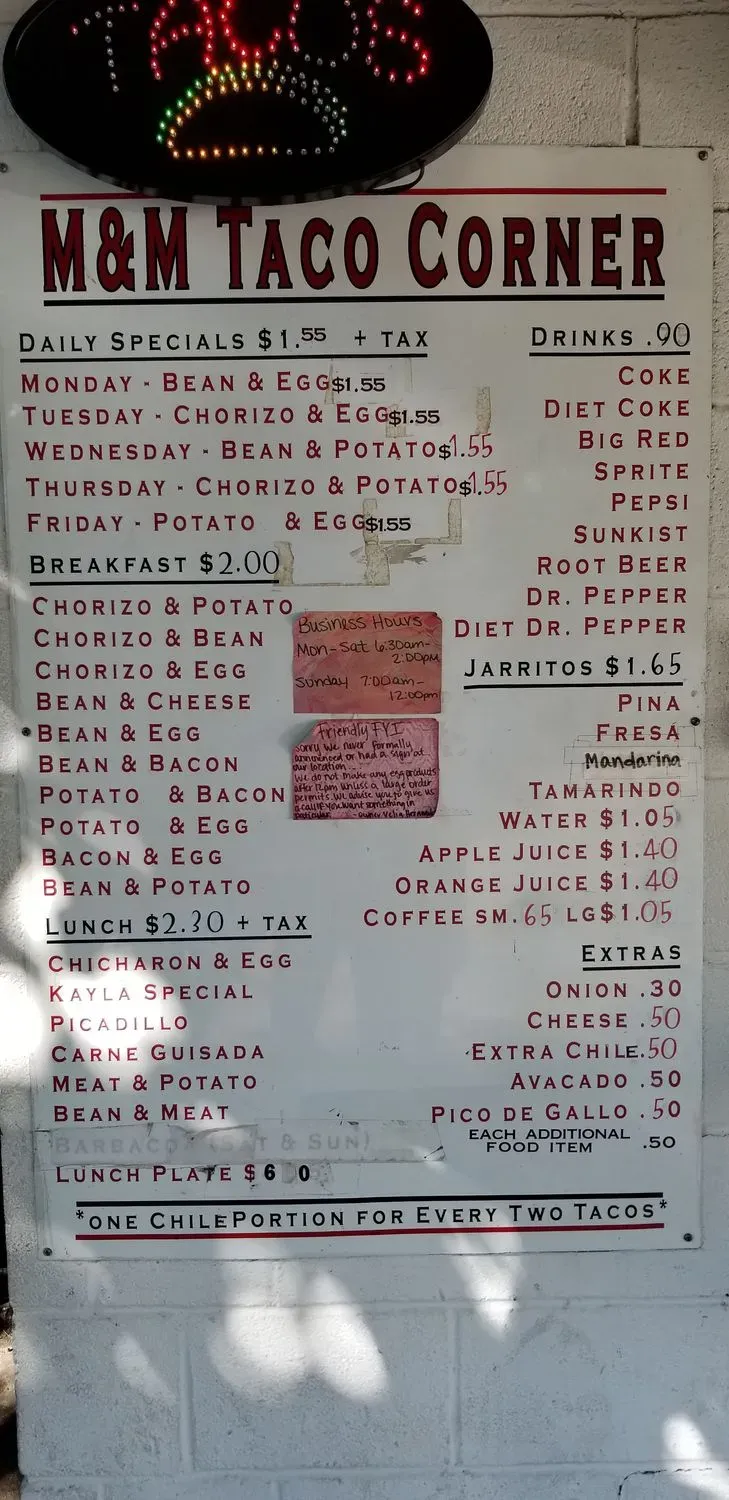 TACOS
M&M TACO CORNER
DAILY SPECIALS $1.55 + TAX
MONDAY - BEAN & EGG $1.55
TUESDAY - CHORIZO & EGG $1.55
WEDNESDAY - BEAN & POTATO $1.55
THURSDAY - CHORIZO & POTATO $1.55
FRIDAY - POTATO & EGG $1.55
BREAKFAST $2.00
CHORIZO & POTATO
CHORIZO & BEAN
CHORIZO & EGG
BEAN & CHEESE
BEAN & EGG
BEAN & BACON
POTATO & BACON
POTATO & EGG
BACON & EGG
BEAN & POTATO
LUNCH $2.30 + TAX
CHICHARON & EGG
KAYLA SPECIAL
PICADILLO
CARNE GUISADA
MEAT & POTATO
BEAN & MEAT
BARBACOA (SAT & SUN)
LUNCH PLATE $6 0
Business Hours
Mon-Sat 6:30am-
2:00pm
Sunday 7:00am-
12:00pm
Friendly FYI
Sorry we never formally
announced or had a sign at
our location...
We do not make any egg products
after 12pm unless a large order
permits. We advise you to give us
a call if you want something in
particular. - owner Velia
DRINKS .90
COKE
DIET COKE
BIG RED
SPRITE
PEPSI
SUNKIST
ROOT BEER
DR. PEPPER
DIET DR. PEPPER
JARRITOS $1.65
PINA
FRESA
Mandarina
TAMARINDO
WATER $1.05
APPLE JUICE $1.40
ORANGE JUICE $1.40
COFFEE SM. 65 LG $1.05
EXTRAS
ONION .30
CHEESE .50
EXTRA CHILE .50
AVACADO .50
PICO DE GALLO .50
EACH ADDITIONAL
FOOD ITEM .50
*ONE CHILE PORTION FOR EVERY TWO TACOS*